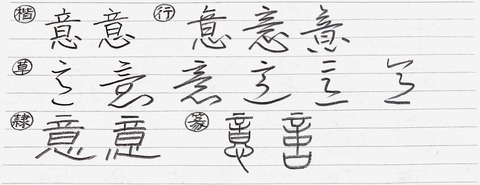 楷 意 意 行 意 意 意
草 意 意 意 意 意 意
隷 意 意 篆 意 意